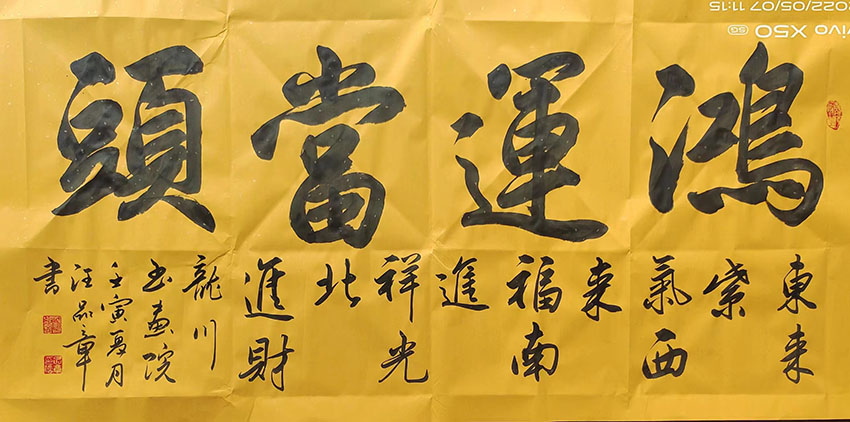 鴻運當頭
東来
紫
氣西
来
福南
進
祥光
北
進財
龍川
书畫院
壬寅夏月
汪品章
書
vivo X50 5G
2022/05/07 11:15